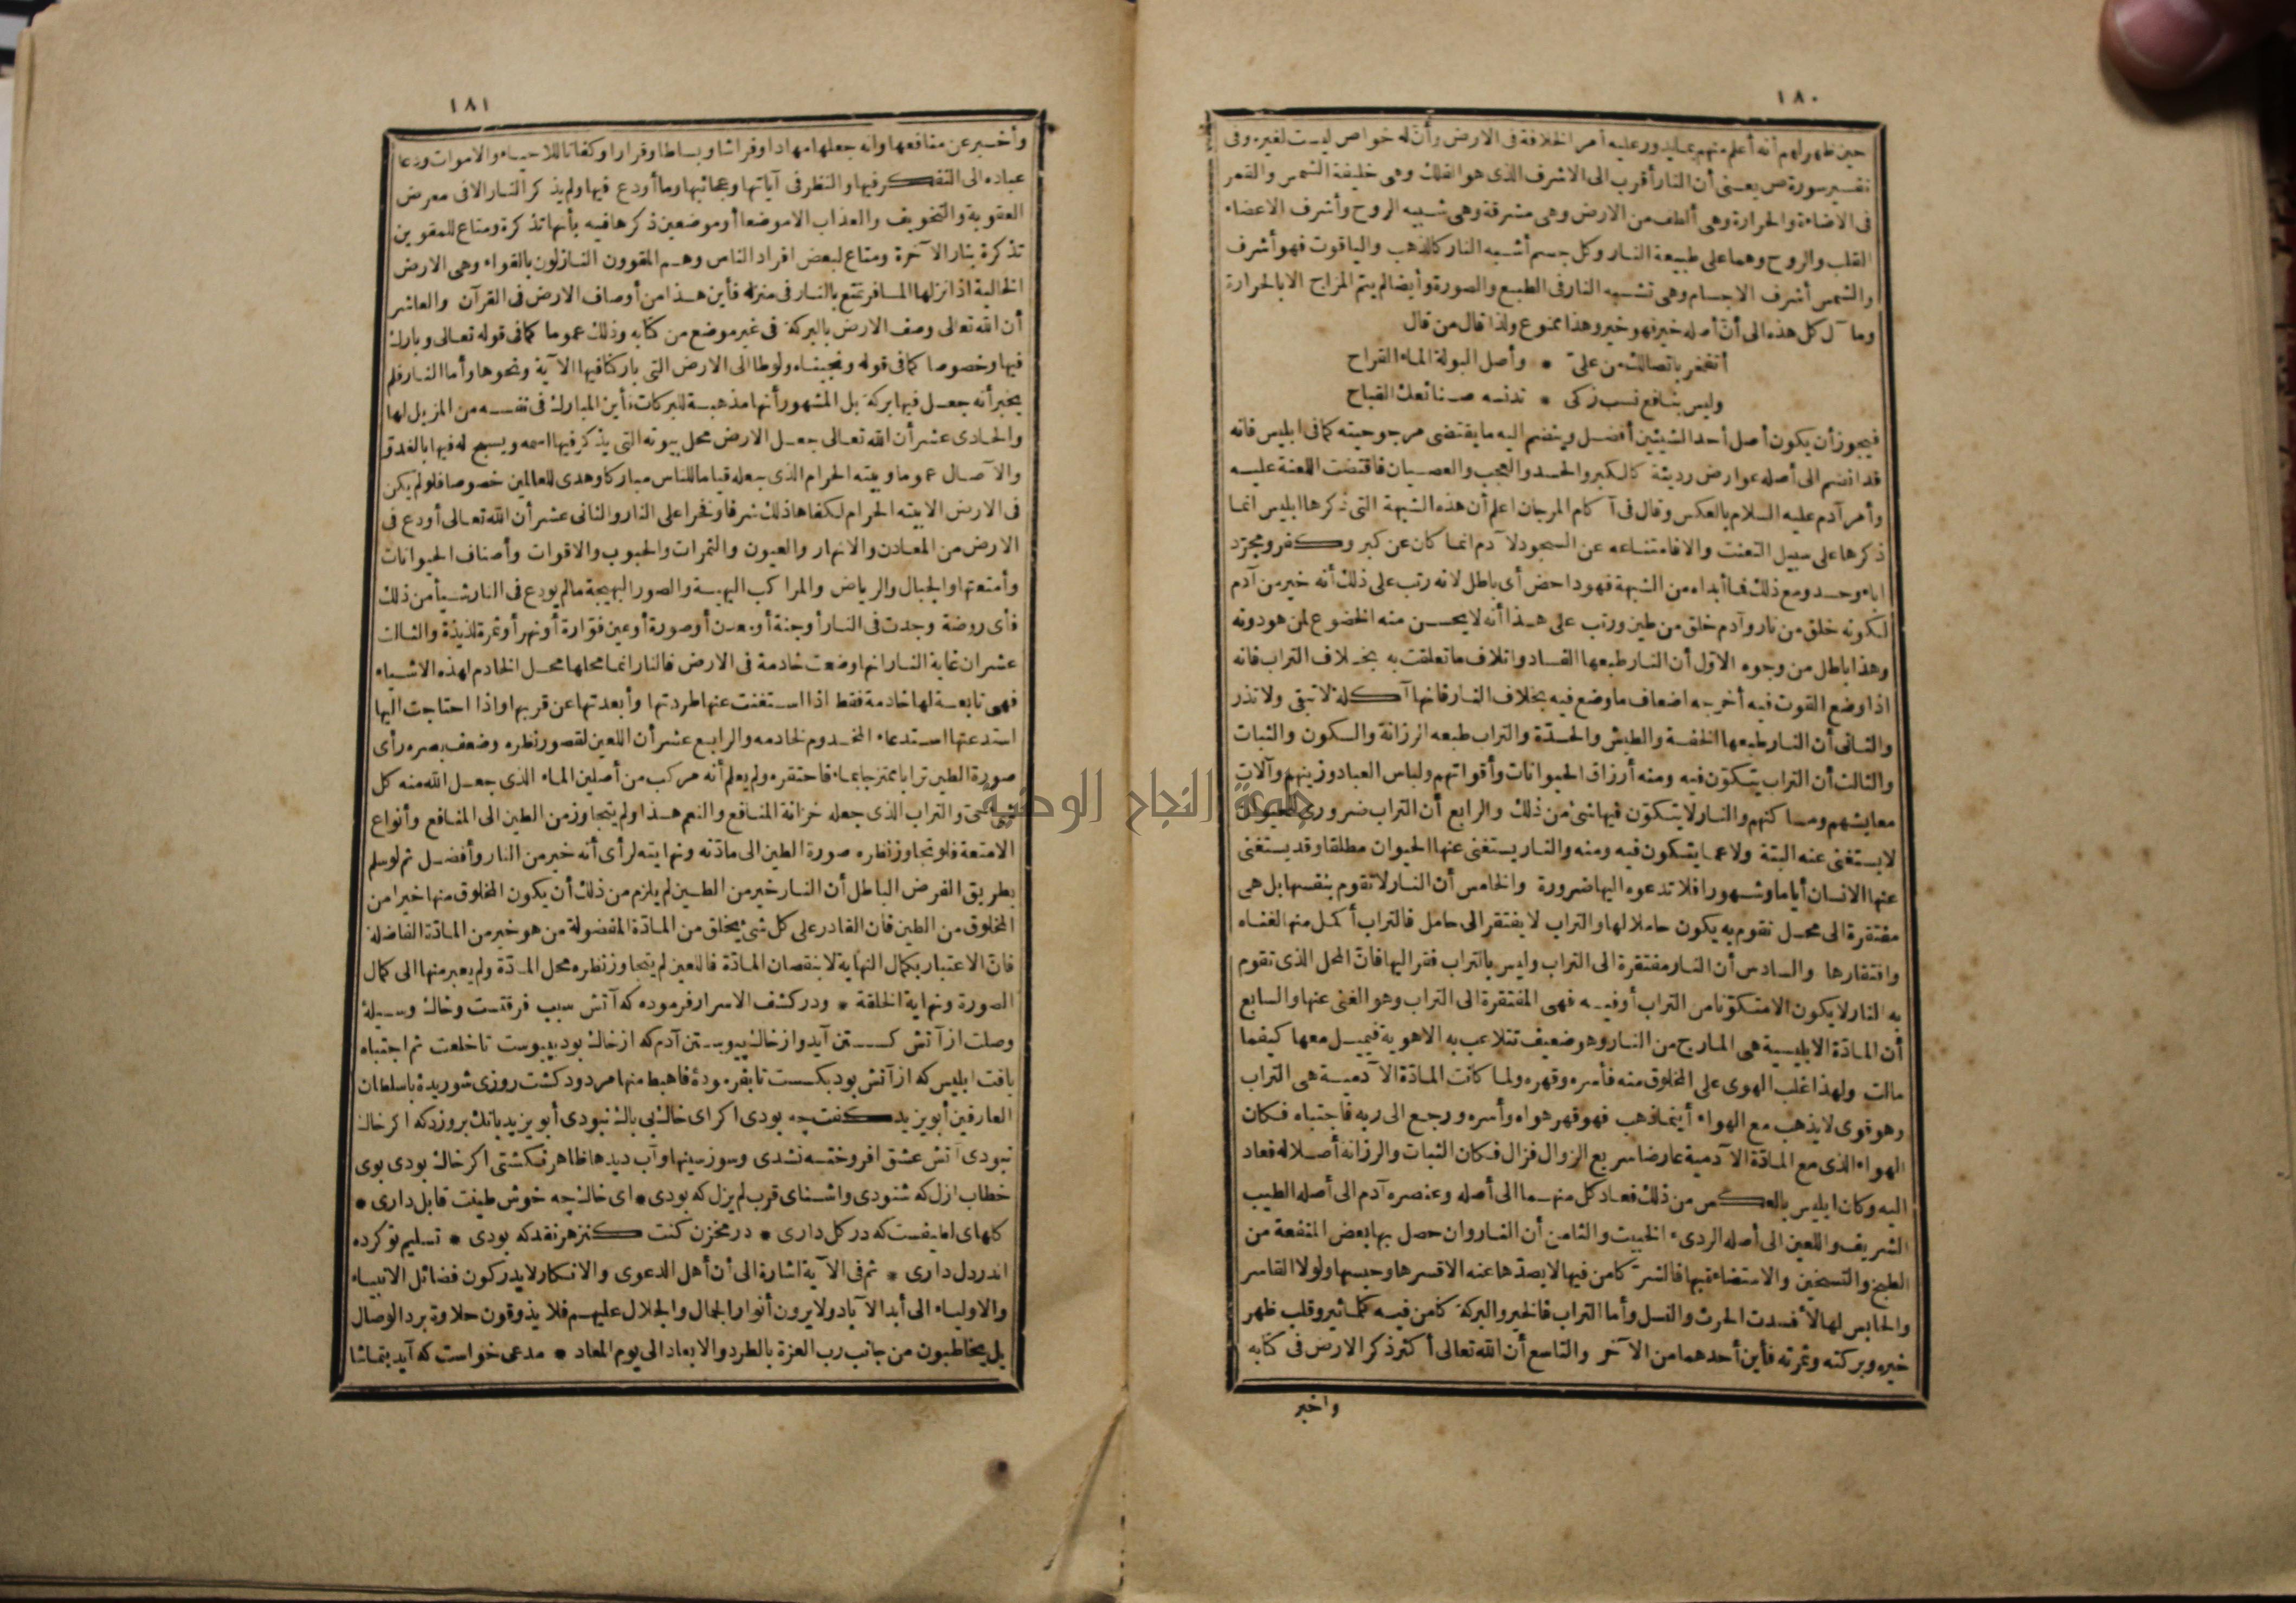 ١٨٠
حين ظهر لهم أنه أعلم منهم بما يدور عليه أمر الخلافة فى الارض وأن له خواص ليست لغيره وفى
تفسير سورة ص يعنى أن النار أقرب الى الاشرف الذى هو الفلك وهى خليفة الشمس والقمر
فى الاضاءة والحرارة وهى ألطف من الارض وهى مشرقة وهى شبيه الروح وأشرف الاعضاء
القلب والروح وهما على طبيعة النار وكل جسم أشبه النار كالذهب والياقوت فهو أشرف
والشمس أشرف الاجسام وهى تشبه النار فى الطبع والصورة وأيضا لم يتم المزاج الا بالحرارة
وما آل كل هذه الى أن أصله خير فهو خير وهذا ممنوع ولذا قال من قال
أتفخر باتصالك من علىّ * وأصل البولة الماء القراح
وليس بنافع نسب زكى * تدنسه صنائعك القباح
فيجوز أن يكون أصل أحد الشيئين أفضل وينضم اليه ما يقتضى مرجوحيته كما فى ابليس فانه
قد انضم الى أصله عوارض رديئة كالكبر والحسد والعجب والعصيان فاقتضت اللعنة عليه
وأمر آدم عليه السلام بالعكس وقال فى آكام المرجان اعلم أن هذه الشبهة التى ذكرها ابليس انما
ذكرها على سبيل التعنت والا فامتناعه عن السجود لآدم انما كان عن كبر وكفر ومجرّد
اباء وحسد ومع ذلك فما أبداه من الشبهة فهو داحض أى باطل لانه رتب على ذلك أنه خير من آدم
لكونه خلق من نار وآدم خلق من طين ورتب على هذا أنه لا يحسن منه الخضوع لمن هو دونه
وهذا باطل من وجوه الاوّل أن النار طبعها الفساد واتلاف ما تعلقت به بخلاف التراب فانه
اذا وضع القوت فيه أخرجه اضعاف ما وضع فيه بخلاف النار فانها آكلة لا تبقى ولا تذر
والثانى أن النار طبعها الخفة والطيش والحدّة والتراب طبعه الرزانة والسكون والثبات
والثالث أن التراب يتكوّن فيه ومنه أرزاق الحيوانات وأقواتهم ولباس العباد وزينهم وآلات
معايشهم ومساكنهم والنار لا يتكوّن فيها شئ من ذلك والرابع أن التراب ضرورى للحيوان
لا يستغنى عنه البتة ولا عما يتكون فيه ومنه والنار يستغنى عنها الحيوان مطلقا وقد يستغنى
عنها الانسان أياما وشهورا فلا تدعوه اليها ضرورة والخامس أن النار لا تقوم بنفسها بل هى
مفتقرة الى محل تقوم به يكون حاملا لها والتراب لا يفتقر الى حامل فالتراب أكمل منها لغناه
وافتقارها والسادس أن النار مفتقرة الى التراب وليس بالتراب فقر اليها فانّ المحل الذى تقوم
به النار لا يكون الا متكوّنا من التراب أو فيه فهى المفتقرة الى التراب وهو الغنى عنها والسابع
أن المادّة الابليسية هى المارج من النار وهو ضعيف تتلاعب به الاهوية فيميل معها كيفما
مالت ولهذا غلب الهوى على المخلوق منه فأسره وقهره ولما كانت المادّة الآدمية هى التراب
وهو قوى لا يذهب مع الهواء أينما ذهب فهو قهر هواه وأسره ورجع الى ربه فاجتباه فكان
الهواء الذى مع المادّة الآدمية عارضا سريع الزوال فزال فكان الثبات والرزانة أصلا له فعاد
اليه وكان ابليس بالعكس من ذلك فعاد كل منهما الى أصله وعنصره آدم الى أصله الطيب
الشريف واللعين الى أصله الردىء الخبيث والثامن أن النار وان حصل بها بعض المنفعة من
الطبخ والتسخين والاستضاءة بها فالشرّ كامن فيها لا يصدّها عنه الا قسرها وحبسها ولولا القاسر
والحابس لها لأفسدت الحرث والنسل وأما التراب فالخير والبركة كامن فيه كلما أثير وقلب ظهر
خيره وبركته وثمرته فأين أحدهما من الآخر والتاسع أن الله تعالى أكثر ذكر الارض فى كتابه
واخبر
١٨١
وأخبر عن منافعها وانه جعلها مهادا وفراشا وبساطا وقرارا وكفاتا للاحياء والاموات ودعا
عباده الى التفكر فيها والنظر فى آياتها وعجائبها وما أودع فيها ولم يذكر النار الا فى معرض
العقوبة والتخويف والعذاب الا موضعا أو موضعين ذكرها فيه بأنها تذكرة ومتاع للمقوين
تذكرة بنار الآخرة ومتاع لبعض افراد الناس وهم المقوون النازلون بالقواء وهى الارض
الخالية اذا نزلها المسافر تمتع بالنار فى منزله فأين هذا من أوصاف الارض فى القرآن والعاشر
أن الله تعالى وصف الارض بالبركة فى غير موضع من كتابه وذلك عموما كما فى قوله تعالى وبارك
فيها وخصوصا كما فى قوله ونجيناه ولوطا الى الارض التى باركنا فيها الآية ونحوها وأما النار فلم
يخبر أنه جعل فيها بركة بل المشهور أنها مذهبة للبركات فأين المبارك فى نفسه من المزيل لها
والحادى عشر أن الله تعالى جعل الارض محل بيوته التى يذكر فيها اسمه ويسبح له فيها بالغدوّ
والآصال عموما وبيته الحرام الذى جعله قياما للناس مباركا وهدى للعالمين خصوصا فلو لم يكن
فى الارض الا بيته الحرام لكفاها ذلك شرفا وفخرا على النار والثانى عشر أن الله تعالى أودع فى
الارض من المعادن والانهار والعيون والثمرات والحبوب والاقوات وأصناف الحيوانات
وأمتعتها والجبال والرياض والمراكب البهية والصور البهيجة ما لم يودع فى النار شيأ من ذلك
فأى روضة وجدت فى النار أو جنة أو معدن أو صورة أو عين فوّارة أو نهر أو ثمرة لذيذة والثالث
عشر ان غاية النار انها وضعت خادمة فى الارض فالنار انما محلها محل الخادم لهذه الاشياء
فهى تابعة لها خادمة فقط اذا استغنت عنها طردتها وأبعدتها عن قربها واذا احتاجت اليها
استدعتها استدعاء المخدوم لخادمه والرابع عشر أن اللعين لقصور نظره وضعف بصره رأى
صورة الطين ترابا ممتزجا بماء فاحتقره ولم يعلم أنه مركب من أصلين الماء الذى جعل الله منه كل
شئ حى والتراب الذى جعله خزانة المنافع والنعم هذا ولم يتجاوز من الطين الى المنافع وأنواع
الامتعة فلو تجاوز نظره صورة الطين الى مادّته ونهايته لرأى أنه خير من النار وأفضل ثم لو سلم
بطريق الفرض الباطل أن النار خير من الطين لم يلزم من ذلك أن يكون المخلوق منها خيرا من
المخلوق من الطين فان القادر على كل شئ يخلق من المادّة المفضولة من هو خير من المادّة الفاضلة
فانّ الاعتبار بكمال النهاية لا بنقصان المادّة فاللعين لم يتجاوز نظره محل المادّة ولم يعبر منها الى كمال
الصورة ونهاية الخلقة * ودر كشف الاسرار فرموده كه آتش سبب فرقتست وخاك وسيلهٔ
وصلت از آتش كستن آيد واز خاك پيوستن آدم كه از خاك بود بپيوست تا خلعت ثم اجتباه
يافت ابليس كه از آتش بود بكسست تا بفرمودهٔ فاهبط منها مردود كشت روزى شوريدهٔ با سلطان
العارفين أبو يزيد كفت چه بودى اكر اى خاك بى باك نبودى أبو يزيد بانك برو زد كه اكر خاك
نبودى آتش عشق افروخته نشدى وسوز سينها وآب ديدها ظاهر نكشتى اكر خاك بودى بوى
خطاب ازل كه شنودى واشناى قرب لم يزل كه بودى * اى خاك چه خوش طينت قابل دارى *
كلهاى لطيفست كه در كل دارى * در مخزن كنت كنز هر نقد كه بودى * تسليم تو كرده
اند در دل دارى * ثم فى الآية اشارة الى أن أهل الدعوى والانكار لا يدركون فضائل الانبياء
والاولياء الى أبد الآباد ولا يرون أنوار الجمال والجلال عليهم فلا يذوقون حلاوة برد الوصال
بل يخاطبون من جانب رب العزة بالطرد والابعاد الى يوم المعاد * مدعى خواست كه آيد بتماشا
جامعة النجاح الوطنية